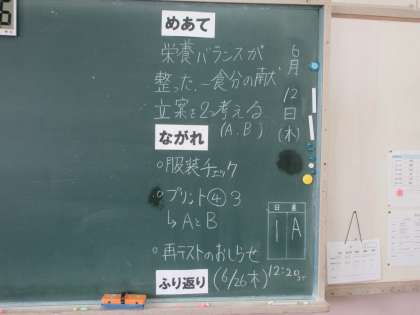 めあて
6月12日(木)
栄養バランスが
整った、一食分の献
立案を2つ考える
(A、B)
ながれ
○服装チェック
○プリント④ 3
↳ AとB
日直
1 A
○再テストのおしらせ
(6/26木) 12:20
ふり返り